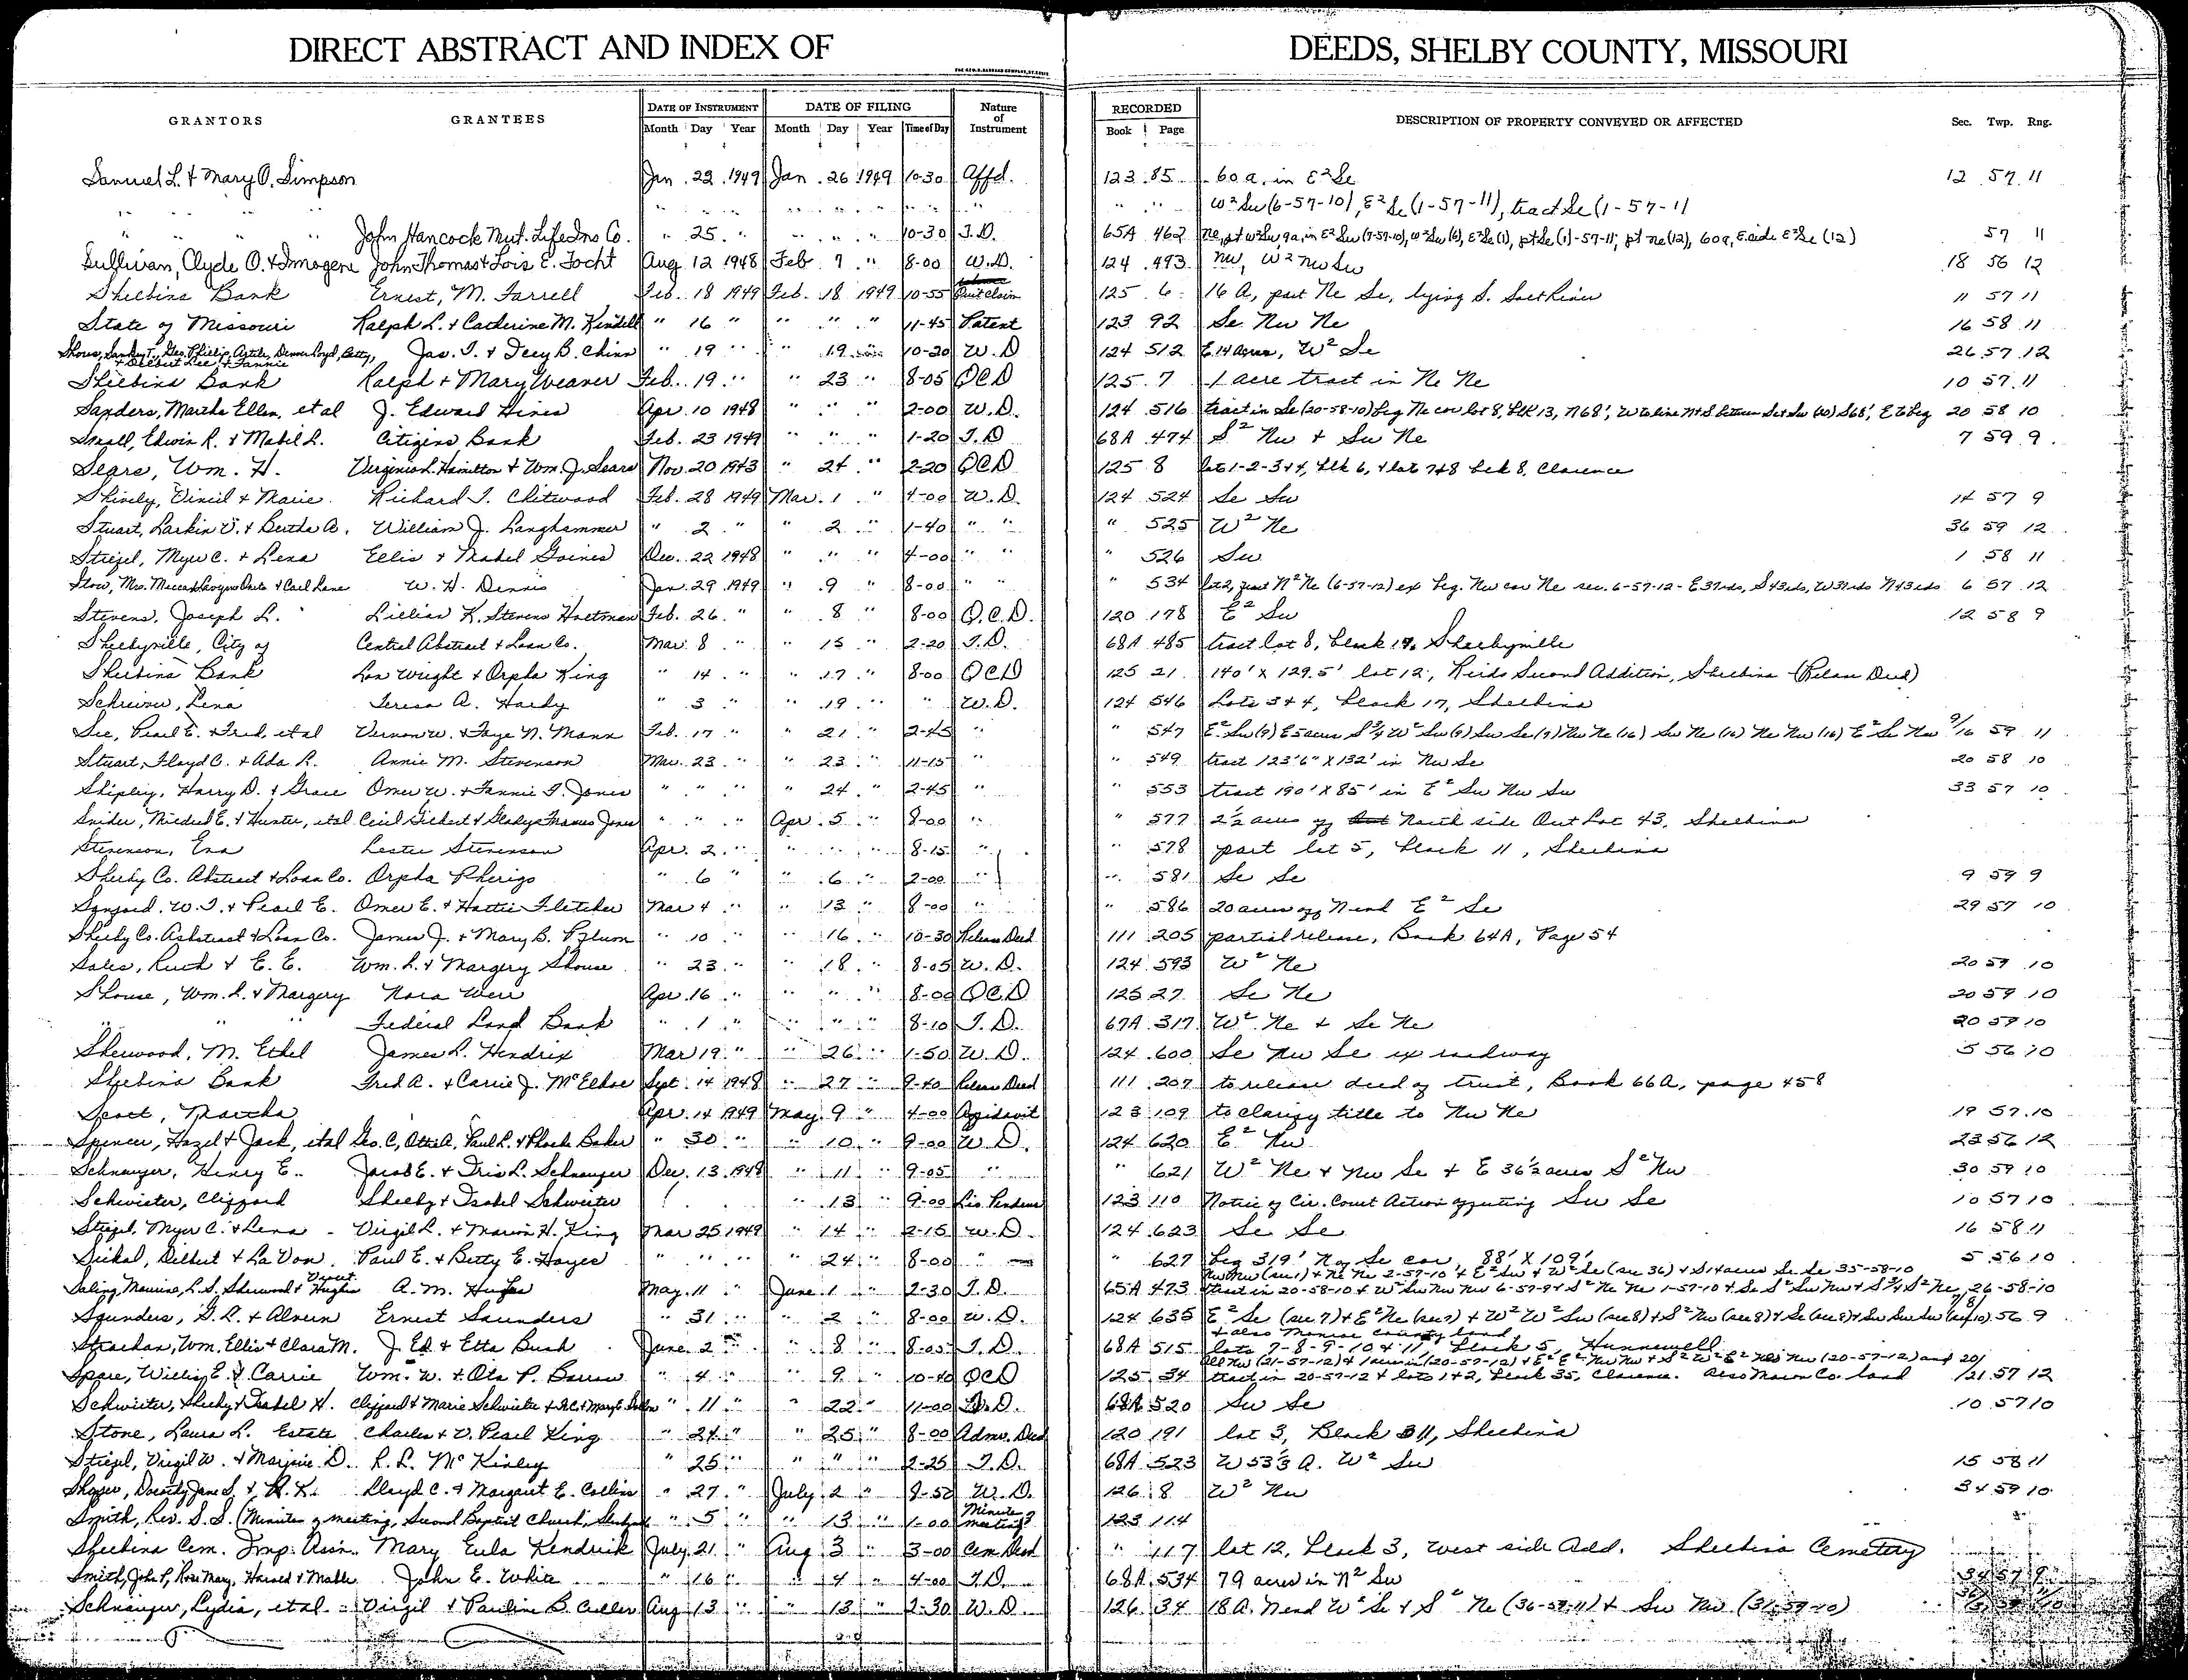 DIRECT ABSTRACT AND INDEX OF DEEDS, SHELBY COUNTY, MISSOURI
GRANTORS GRANTEES DATE OF INSTRUMENT DATE OF FILING Nature of Instrument RECORDED DESCRIPTION OF PROPERTY CONVEYED OR AFFECTED Sec. Twp. Rng.
Month Day Year Month Day Year Time of Day Book Page
Samuel L. & Mary O. Simpson Jan. 22 1949 Jan. 26 1949 10-30 Affd. 123 85 60 a. in E² Se 12 57 11
" " " " " " " " " " " " " W² Sw (6-57-10), E² Se (1-57-11), tract Se (1-57-11
" " " John Hancock Mut. Life Ins Co. " 25 " " " " 10-30 T.D. 65A 462 Ne, pt W² Sw 9a, in E² Sw (7-57-10), W² Sw (6), E² Se (1), pt Se (1)-57-11, pt ne (12), 60a, E. side E² Se (12) 57 11
Sullivan, Clyde O. & Imogene John Thomas & Lois E. Tocht Aug 12 1948 Feb 7 " 8-00 W.D. 124 493 Nw, W² Nw Sw 18 56 12
Shelbina Bank Ernest, M. Farrell Feb. 18 1949 Feb. 18 1949 10-55 Quit Claim 125 6 16 A, part Ne Se, lying S. Salt River 11 57 11
State of Missouri Ralph L. & Catherine M. Kindell " 16 " " " " 11-45 Patent 123 92 Se Nw Ne 16 58 11
Geo. Phillip, Betty, & Delbert Lee, & Fannie Jas. T. & Icey B. Chinn " 19 " " 19 " 10-20 W.D 124 512 E. 14 acres, W² Se 26 57 12
Shelbina Bank Ralph & Mary Weaver Feb. 19 " " 23 " 8-05 QCD 125 7 1 acre tract in Ne Ne 10 57 11
Sanders, Martha Ellen, et al J. Edward Hines Apr. 10 1948 " " " 2-00 W.D. 124 516 tract in Se (20-58-10) beg Ne cor lot 8, blk 13, N 68', W to line N & S between Se & Sw (20) S 68', E to beg 20 58 10
Small, Edwin R. & Mabel L. Citizens Bank Feb. 23 1949 " " " 1-20 T.D 68A 474 S² Nw & Sw Ne 7 59 9
Sears, Wm. H. Virginia L. Hamilton & Wm. J. Sears Nov. 20 1943 " 24 " 2-20 QCD 125 8 lots 1-2-3 & 4, blk 6, & lots 7 & 8 blk 8, Clarence
Shively, Vincil & Marie Richard T. Chitwood Feb. 28 1949 Mar. 1 " 4-00 W.D. 124 524 Se Sw 14 57 9
Stuart, Larkin V. & Bertha A. William J. Langhammer " 2 " " 2 " 1-40 " " " 525 W² Ne 36 59 12
Stiegel, Myer C. & Lena Ellis & Mabel Gaines Dec. 22 1948 " " " 4-00 " " " 526 Sw 1 58 11
W. H. Dennis Jan. 29 1949 " 9 " 8-00 " " " 534 lot 2, part N² Ne (6-57-12) ex beg. Nw cor Ne sec. 6-57-12 - E 37 rds, S 43 rds, W 37 rds N 43 rds 6 57 12
Stevens, Joseph L. Lillian K. Stevens Holtman Feb. 26 " " 8 " 8-00 Q.C.D. 120 178 E² Sw 12 58 9
Shelbyville, City of Central Abstract & Loan Co. Mar. 8 " " 15 " 2-20 T.D. 68A 485 tract lot 8, block 17, Shelbyville
Shelbina Bank Lon Wright & Orpha King " 14 " " 17 " 8-00 QCD 125 21 140' X 129.5' lot 12, Reids Second Addition, Shelbina (Release Deed)
Schriver, Lena Teresa A. Hardy " 3 " " 19 " " W.D. 124 546 Lots 3 & 4, block 17, Shelbina
See, Pearl E. & Fred, et al Vernon W. & Faye N. Mann Feb. 17 " " 21 " 2-45 " " 547 E² Sw (9) E 5 acres S ¾ W² Sw (9) Sw Se (9) Nw Ne (16) Sw Ne (16) Ne Nw (16) E² Se Nw 9/16 59 11
Stuart, Floyd C. & Ada R. Annie M. Stevenson Mar. 23 " " 23 " 11-15 " " 549 tract 123'6" X 132' in Nw Se 20 58 10
Shipley, Harry D. & Grace Omer W. & Fannie F. Jones " " " " 24 " 2-45 " " 553 tract 190' X 85' in E² Sw Nw Sw 33 57 10
Snider, Mildred E. & Hunter, et al Cecil Gilbert & Gladys Frances Jones " " " Apr. 5 " 8-00 " " 577 2½ acres off North side Out Lot 43, Shelbina
Stevenson, Eva Lester Stevenson Apr. 2 " " " " 8-15 " " 578 part lot 5, block 11, Shelbina
Shelby Co. Abstract & Loan Co. Orpha Pherigo " 6 " " 6 " 2-00 " " 581 Se Se 9 59 9
Sanford, W. T. & Pearl E. Omer E. & Hattie Fletcher Mar 4 " " 13 " 8-00 " " 586 20 acres off N end E² Se 29 57 10
Shelby Co. Abstract & Loan Co. James J. & Mary B. Pflum " 10 " " 16 " 10-30 Release Deed 111 205 partial release, Book 64A, Page 54
Sales, Ruth & E. E. Wm. L. & Margery Shouse " 23 " " 18 " 8-05 W.D. 124 593 W² Ne 20 59 10
Shouse, Wm. L. & Margery Nora Weir Apr. 16 " " " " 8-00 QCD 125 27 Se Ne 20 59 10
" " " Federal Land Bank " 1 " " " " 8-10 T.D. 67A 317 W² Ne & Se Ne 20 59 10
Sherwood, M. Ethel James L. Hendrix Mar 19 " " 26 " 1-50 W.D. 124 600 Se Nw Se ex railway 5 56 10
Shelbina Bank Fred A. & Carrie J. McElhoe Sept. 14 1948 " 27 " 9-40 Release Deed 111 207 to release deed of trust, Book 66A, page 458
Scott, Martha Apr. 14 1949 May. 9 " 4-00 Affidavit 123 109 to clarify title to Nw Ne 19 57 10
Spencer, Hazel & Jack, et al Geo. C, Ottis A. Paul R. & Phoebe Baker " 30 " " 10 " 9-00 W.D. 124 620 E² Nw 23 56 12
Schnauger, Henry E. Jacob E. & Iris L. Schnauger Dec. 13 1948 " 11 " 9-05 " " 621 W² Ne & Nw Se & E 36½ acres S² Nw 30 59 10
Schwieter, Clifford Shelby & Isabel Schwieter " 13 " 9-00 Lis Pendens 123 110 Notice of Cir. Court Action affecting Sw Se 10 57 10
Stiegel, Myer C. & Lena Virgil L. & Marion H. King Mar 25 1949 " 14 " 2-15 W.D 124 623 Se Se 16 58 11
Sickal, Delbert & La Von Paul E. & Betty E. Hayes " " " " 24 " 8-00 " " 627 beg 319' N of Se cor, 88' X 109' 5 56 10
Nw Nw (sec 1) & Ne Ne 2-57-10 & E² Sw & W² Se (sec 36) & S 14 acres Se Se 35-58-10
Saling, Maurine, L.S. Sherwood & Hughes A. M. Hughes May. 11 " June 1 " 2-30 T.D. 65A 473 tract in 20-58-10 & W² Sw Nw Nw 6-57-9 & S² Ne Ne 1-57-10 & Se S² Sw Nw & S¾ S² Ne, 26-58-10
Saunders, G. L. & Alneen Ernest Saunders " 31 " " 2 " 8-00 W.D. 124 635 E² Se (sec 7) & E² Ne (sec 7) & W² W² Sw (sec 8) & S² Nw (sec 8) & Se (sec 8) & Sw Sw Sw (sec 10) 7/8/10 56 9
& also Monroe County land
Strachan, Wm. Ellis & Clara M. J. Ed & Etta Bush June 2 " " 8 " 8-05 T.D. 68A 515 lots 7-8-9-10 & 11, block 5, Hunnewell
Spare, Willis E. & Carrie Wm. W. & Ota P. Barrow " 4 " " 9 " 10-40 QCD 125 34 tract in 20-57-12 & lots 1 & 2, block 35, Clarence. Also Macon Co. land 20/21 57 12
Schwieter, Shelby & Isabel H. Clifford & Marie Schwieter " 11 " " 22 " 11-00 W.D. 68A 520 Sw Se 10 57 10
Stone, Laura L. Estate Charles & V. Pearl King " 24 " " 25 " 8-00 Admr. Deed 120 191 lot 3, Block 11, Shelbina
Stiegel, Virgil W. & Marjorie D. R. L. McKinley " 25 " " " " 2-25 T.D. 68A 523 W 53⅓ A. W² Sw 15 58 11
Dorothy Jane S. & R. K. Lloyd C. & Margaret E. Collins " 27 " July 2 " 8-50 W.D. 126 8 W² Nw 34 59 10
Smith, Rev. S. S. (Minutes of meeting, Second Baptist Church, " 5 " " 13 " 1-00 Minutes meeting 123 114
Shelbina Cem. Imp. Assn. Mary Eula Kendrick July 21 " Aug 3 " 3-00 Cem Deed " 117 lot 12, block 3, west side Add. Shelbina Cemetery
Smith, John P, Rose Mary, Harold & Mable John E. White " 16 " " 4 " 4-00 T.D. 68A 534 79 acres in N² Sw 34 57 9
Schnauger, Lydia, et al Virgil & Pauline B. Culler Aug 13 " " 13 " 2-30 W.D. 126 34 18 A. N end W² Se & S² Ne (36-59-11) & Sw Nw (31-59-10)